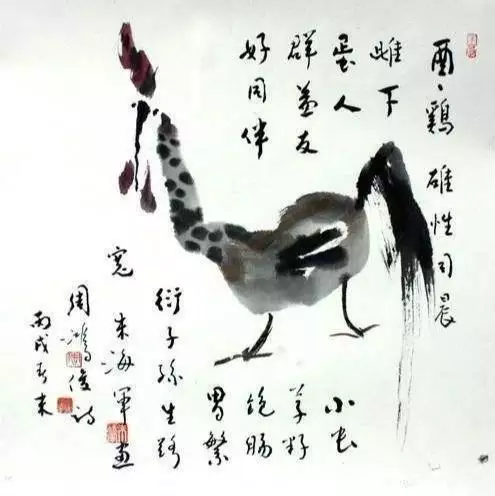 酉、鷄 雄性司晨
雌下
蛋人
群益友
好同伴
小虫
草籽
饱肠
胃繁
衍子孫生路
寬 朱海軍画
周鴻俊詩
丙戌春末